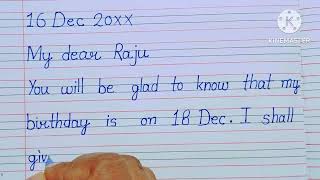 16 Dec 20xx
KINEMASTER
My dear Raju
You will be glad to know that my
birthday is on 18 Dec. I shall
giv